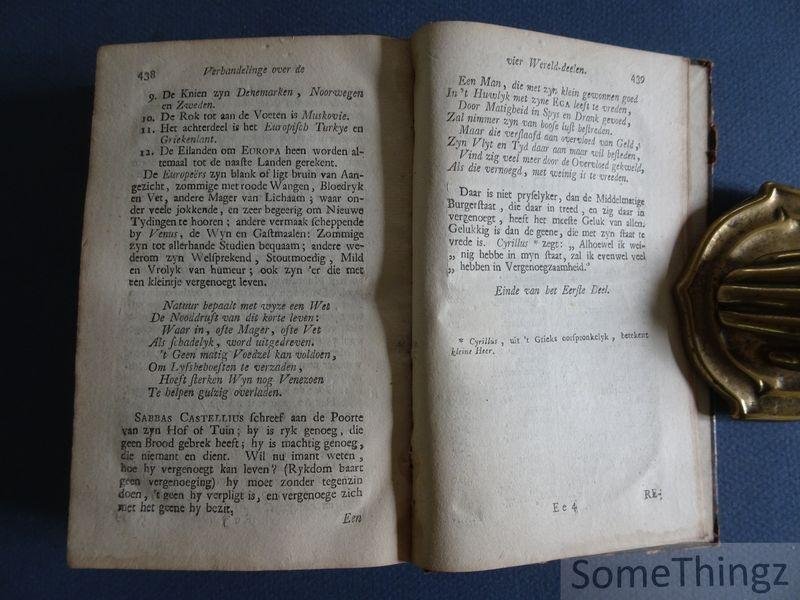 438
Verhandelinge over de
9. De Knien zyn Denemarken, Noorwegen
en Zweden.
10. De Rok tot aan de Voeten is Muskovie.
11. Het achterdeel is het Europisch Turkye en
Griekenlant.
12. De Eilanden om EUROPA heen worden al-
temaal tot de naaste Landen gerekent.
De Europeërs zyn blank of ligt bruin van Aan-
gezicht, zommige met roode Wangen, Bloedryk
en Vet, andere Mager van Lichaam; waar on-
der veele jokkende, en zeer begeerig om Nieuwe
Tydingen te hooren; andere vermaak scheppende
by Venus, de Wyn en Gastmaalen: Zommige
zyn tot allerhande Studien bequaam; andere we-
derom zyn Welsprekend, Stoutmoedig, Mild
en Vrolyk van humeur; ook zyn 'er die met
een kleintje vergenoegt leven.
Natuur bepaalt met wyze een Wet
De Nooddruft van dit korte leven:
Waar in, ofte Mager, ofte Vet
Als schadelyk, word uitgedreven.
't Geen matig Voedzel kan voldoen,
Om Lyfsbehoeften te verzaden,
Hoeft sterken Wyn nog Venezoen
Te helpen gulzig overladen.
SABBAS CASTELLIUS schreef aan de Poorte
van zyn Hof of Tuin; hy is ryk genoeg, die
geen Brood gebrek heeft; hy is machtig genoeg,
die niemant en dient. Wil nu imant weten,
hoe hy vergenoegt kan leven? (Rykdom baart
geen vergenoeging) hy moet zonder tegenzin
doen, 't geen hy verpligt is, en vergenoege zich
met het geene hy bezit,
Een
vier Wereld-deelen.
439
Een Man, die met zyn klein gewonnen goed
In 't Huwlyk met zyne EGA leeft te vreden,
Door Matigheid in Spys en Drank gevoed,
Zal nimmer zyn van boose lust bestreden.
Maar die verslaafd aan overvloed van Geld,
Zyn Vlyt en Tyd daar aan maar wil besteden,
Vind zig veel meer door de Overvloed gekweld,
Als die vernoegd, met weinig is te vreeden.
Daar is niet pryselyker, dan de Middelmatige
Burgerstaat, die daar in treed, en zig daar in
vergenoegt, heeft het meeste Geluk van allen.
Gelukkig is dan de geene, die met zyn staat te
vrede is. Cyrillus * zegt: „ Alhoewel ik wei-
„ nig hebbe in myn staat, zal ik evenwel veel
„ hebben in Vergenoegzaamheid."
Einde van het Eerste Deel.
* Cyrillus, uit 't Grieks oorspronkelyk, betekent
kleine Heer.
Ee 4
RE-
SomeThingz